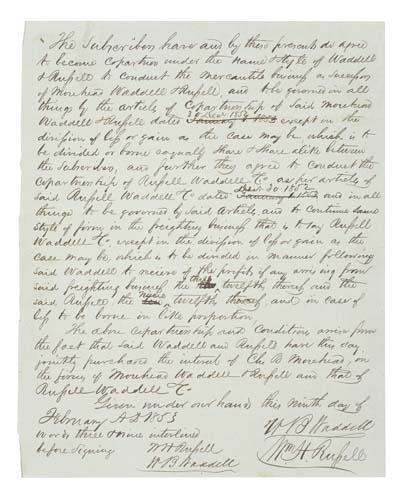 The Subscribers have and by these presents do agree
to become copartners under the name & style of Waddell
& Russell to conduct the Mercantile business as successors
of Morehead Waddell & Russell, and to be governed in all
things by the Article of Copartnership of Said Morehead
30 Decr 1852
Waddell & Russell dated January 1 1853 except in the
division of loss or gain as the case may be which is to
be divided or borne equally share & share alike between
the Subscribers, and further they agree to conduct the
Copartnership of Russell Waddell & Co as per articles of
Decr 30 1852
Said Russell Waddell & Co dated January and in all
things to be governed by said Articles and to continue same
style of firm in the freighting business that is to say Russell
Waddell & Co, except in the division of loss or gain as the
case may be, which is to be divided in manner following
Said Waddell to receive of the profits if any arising from
three
said freighting business the twelfth thereof and the
nine
said Russell the twelfth thereof and in case of
loss to be borne in like proportion
The above copartnership and Condition arises from
the fact that said Waddell and Russell have this day
jointly purchased the interest of Chs B Morehead in
the firms of Morehead Waddell & Russell and that of
Russell Waddell & Co
Given under our hands this ninth day of
February A D 1853
words three & nine interlined
before signing
W B Waddell
W H Russell
Wm H Russell
W B Waddell